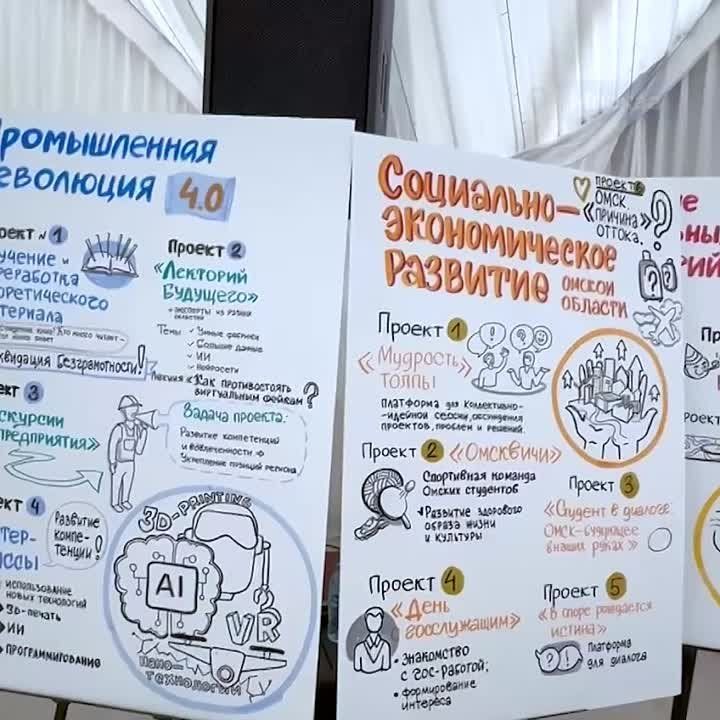 Промышленная
еволюция 4.0
оект №1
учение и
реработка
оретического
атериала
квидация Безграмотности!
Проект 2
«Лекторий
Будущего»
+ эксперты из разных
областей
Темы
✓ Умные фабрики
✓ Большие данные
✓ ИИ
✓ Нейросети
Лекция «Как противостоять
виртуальным фейкам?
ект 3
скурсии
предприятия»
Задача проекта:
Развитие компетенций
и вовлеченности →
Укрепление позиций региона
ект 4
тер-
ссы
Развитие
компе-
тенции!
использование
новых технологий
3D-печать
ИИ
Программирование
3D-PRINTING
AI
VR
Нано-
технологии
Социально-
экономическое
развитие
омской
области
Проект 6
Омск.
«причина»
оттока.
?
Проект 1
«Мудрость»
толпы
Платформа для коллективно-
-идейной сессии, обсуждения
проектов, проблем и решений.
Проект 2 «Омсквичи»
Спортивная команда
Омских студентов
Развитие здорового
образа жизни
и культуры
Проект 3
«Студент в диалоге.
Омск-будущее
в наших руках»
Проект 4
«День
госслужащим»
• Знакомство
с гос-работой;
• формирование
интереса
Проект 5
«В споре рождается
истина»
?!
Платформа
для диалога
ие
ьны
рий
Пр
роект